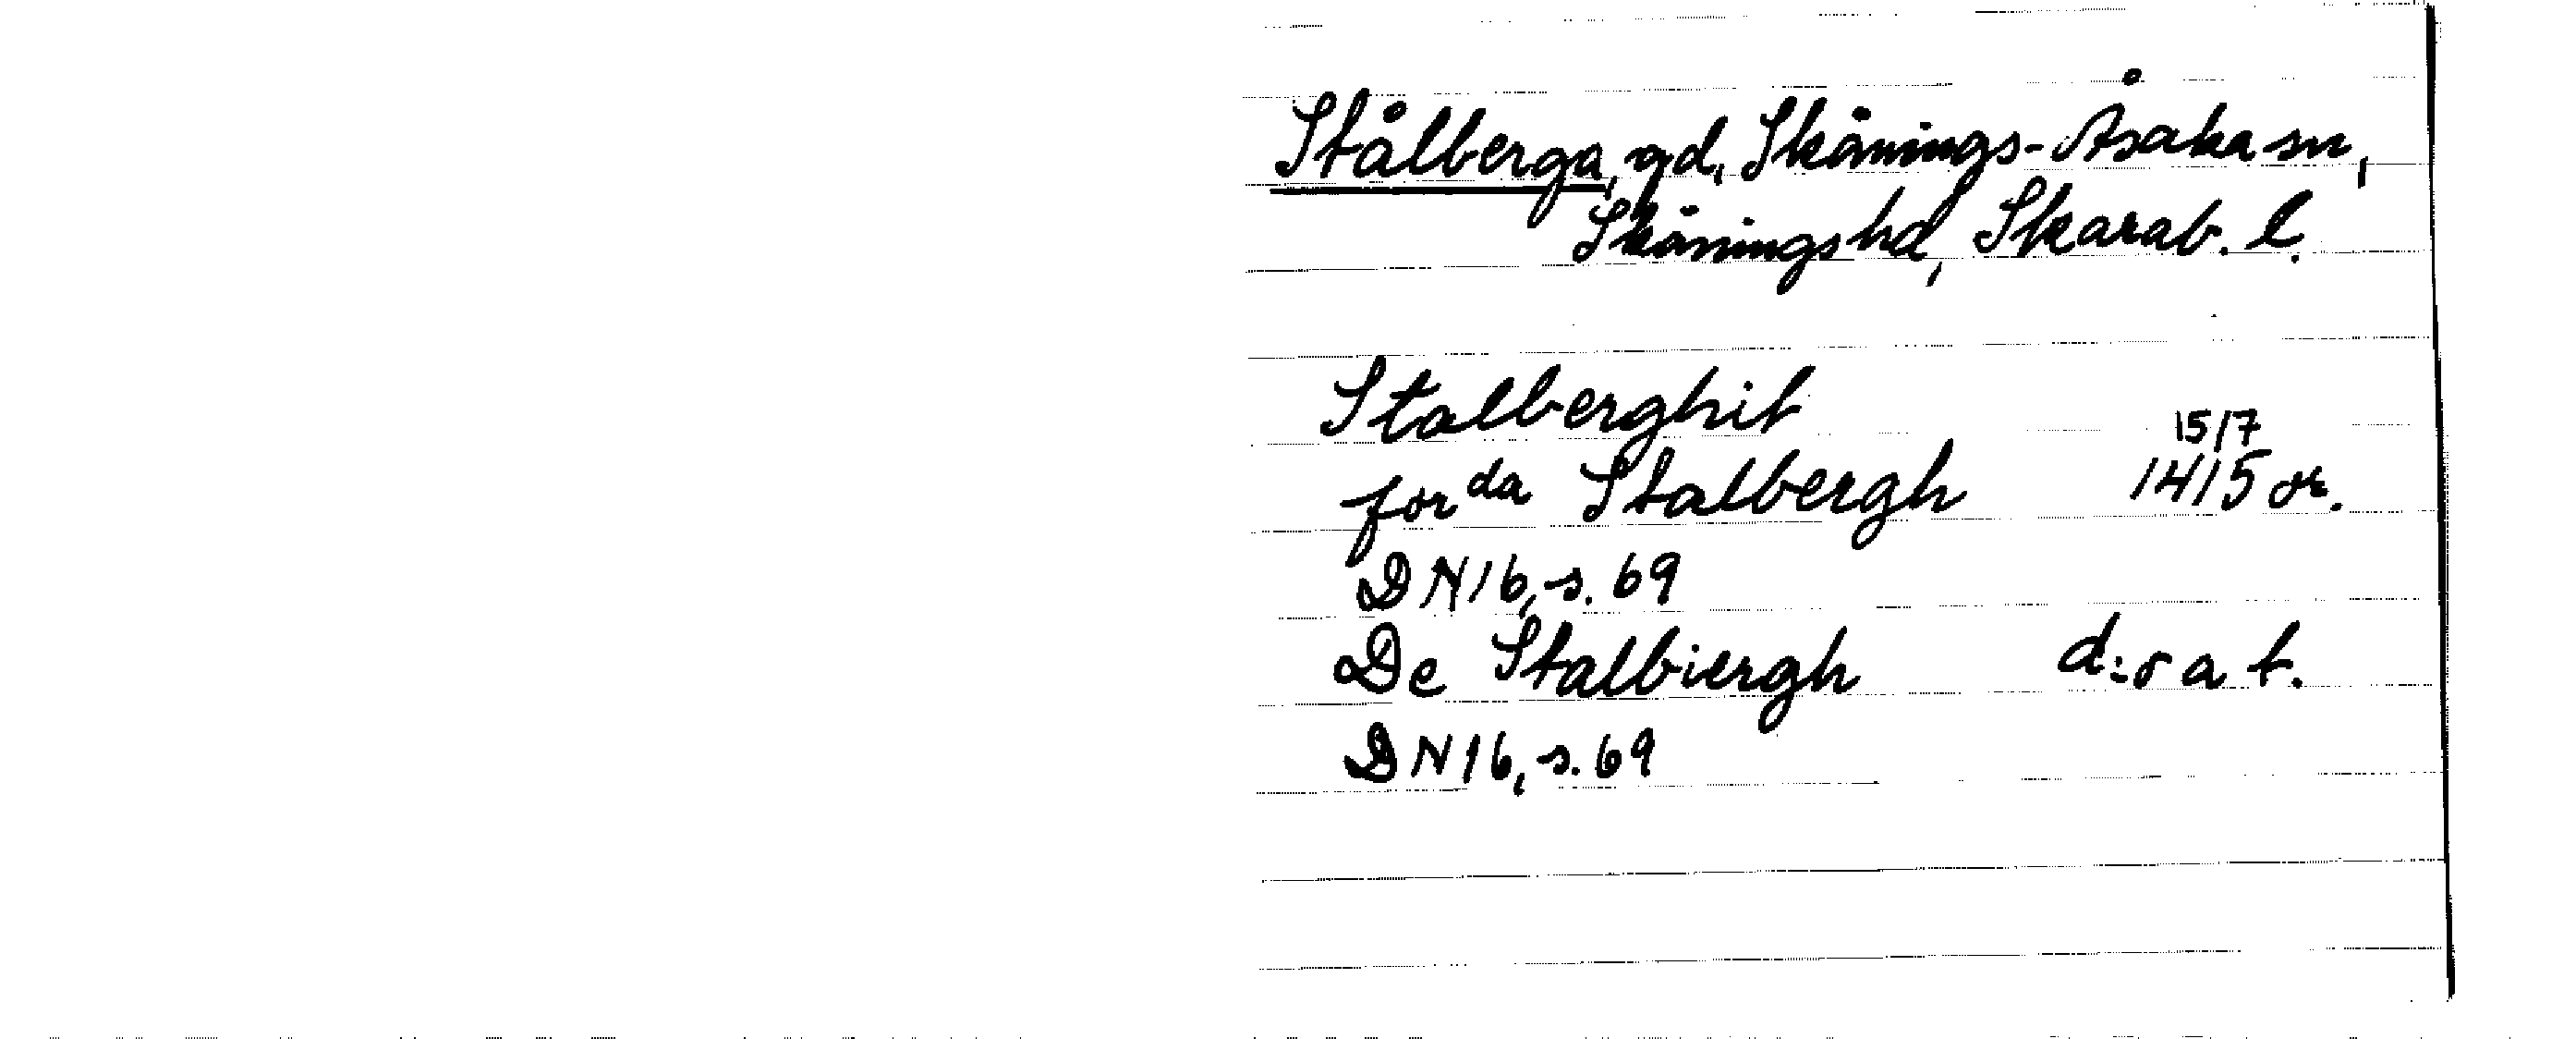 Stålberga, gd, Skånings-Åsaka sn,
Skånings hd, Skarab. l.
Stalberghit
forda Stalbergh 15/7 1415 or.
DN 16, s. 69
De Stalbiergh d:o a t.
DN 16, s. 69